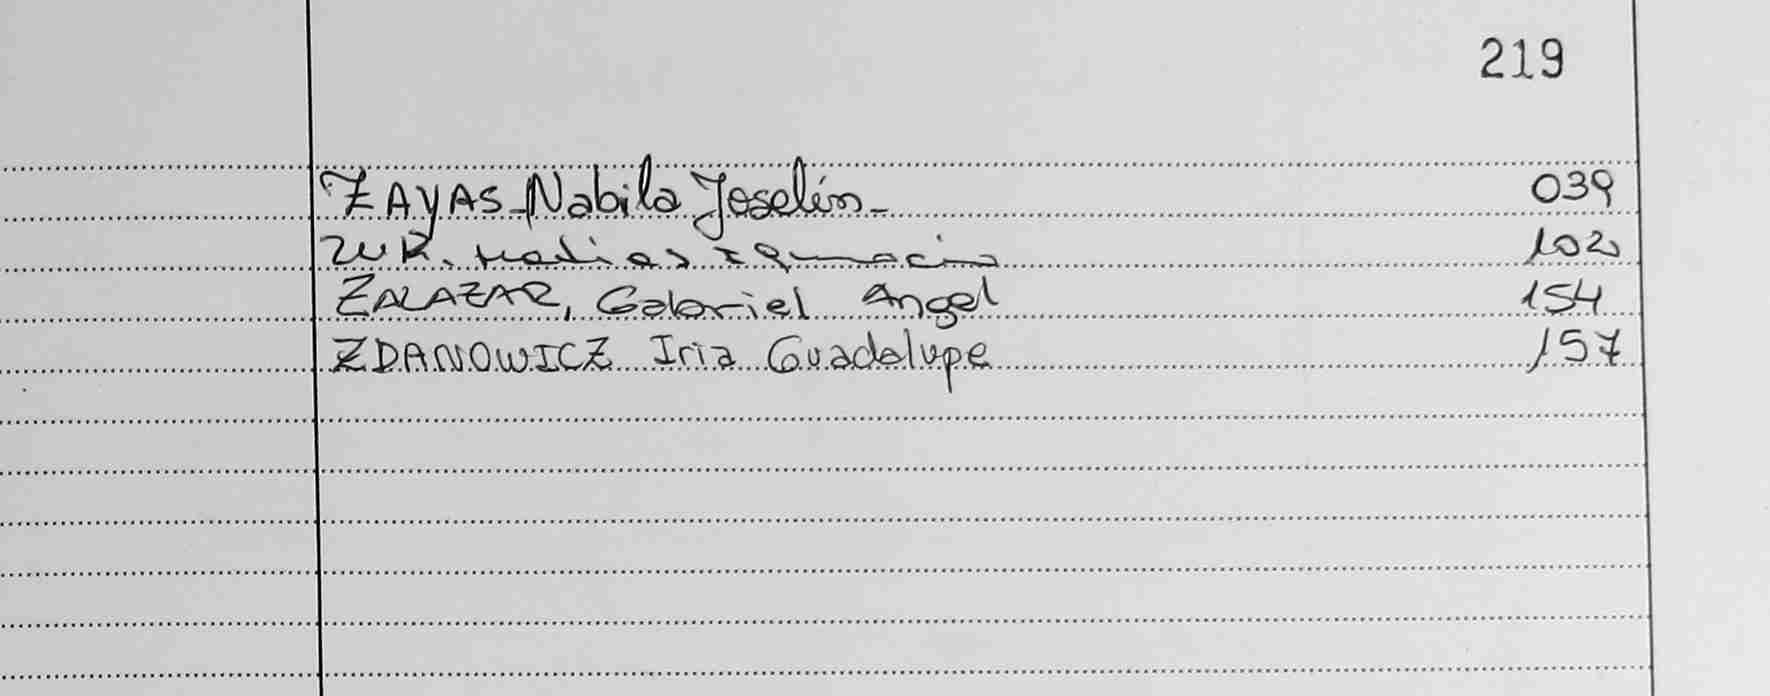 219
ZAYAS - Nabila Joselín - 039
ZUK, Matias Ignacio 102
ZALAZAR, Gabriel Angel 154
ZDANOWICZ Iria Guadalupe 157